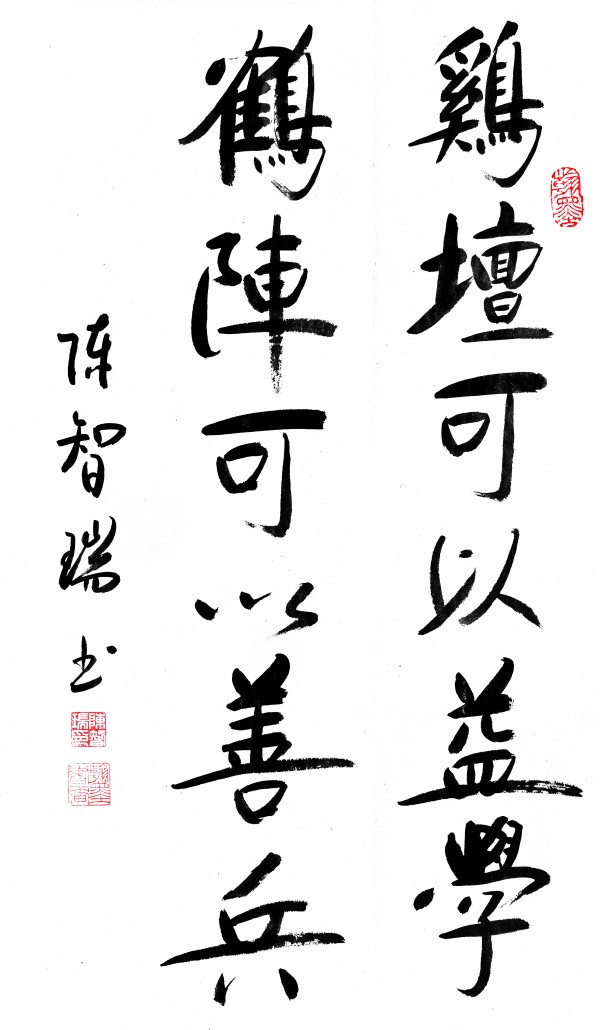 鷄壇可以益學
鶴陣可以善兵
陳智瑞书